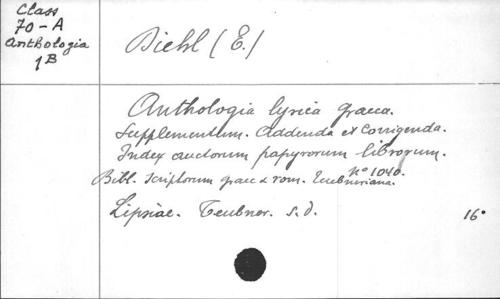 Class
70-A
Anthologia
1B
Diehl (E.)
Anthologia lyrica graeca.
Supplementum. Addenda et Corrigenda.
Index auctorum papyrorum librorum.
Bibl. scriptorum graec & rom. Teubneriana. N° 1040.
Lipsiae. Teubner. s.d.
16°